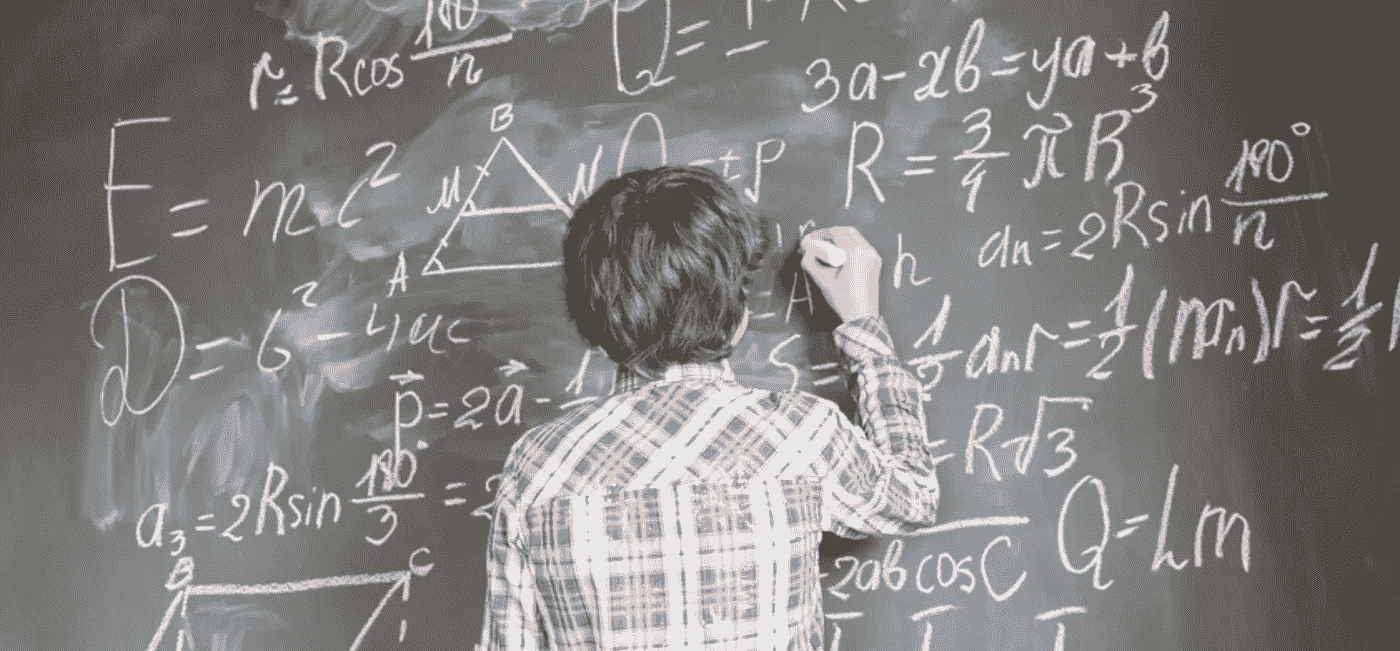 r = Rcos 180/n
Q =
3a-2b=ya+b
E = mc²
B
M
N
A
± p
R = 3/4 π R³
aₙ = 2Rsin 180°/n
h
= A
D = b² - 4ac
p⃗ = 2a⃗ - 1
S =
1/2 aₙr = 1/2 (naₙ)r = 1/2
= R√3
a₃ = 2Rsin 180°/3 = 2
Q = Lm
-2ab cosC
B
C